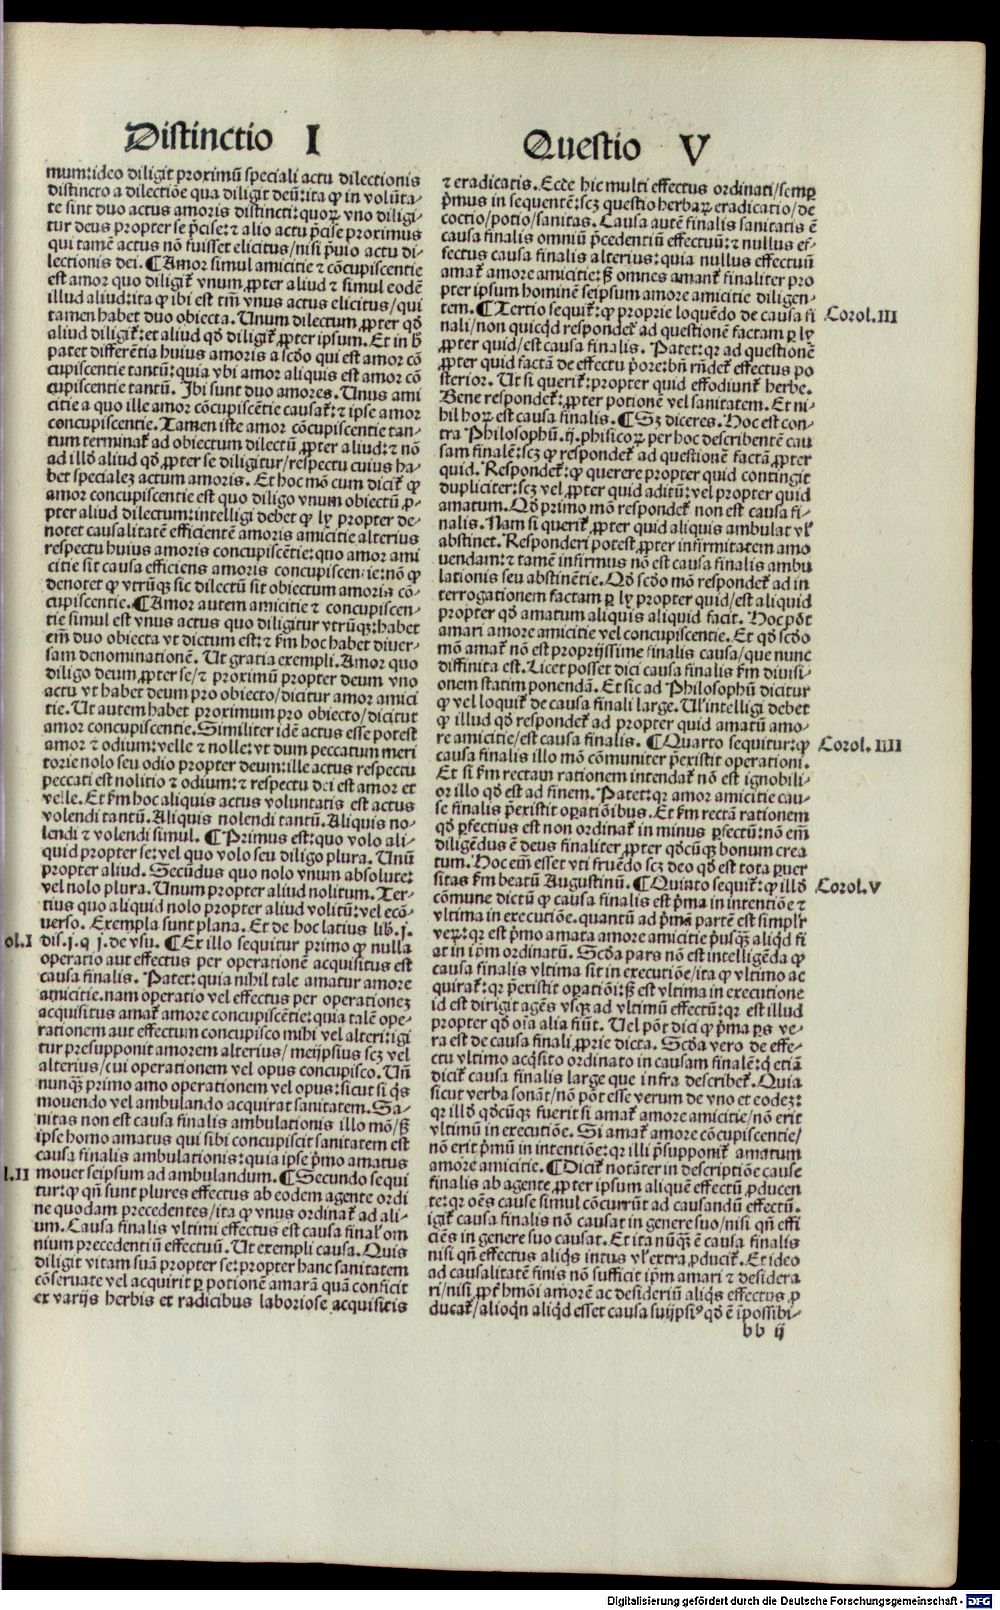 Distinctio I
Questio V
mum: ideo diligit proximū speciali actu dilectionis
distincto a dilectiōe qua diligit deū: ita ꝙ in volūta-
te sint duo actus amoris distincti: quoꝝ vno diligi-
tur deus propter se p̄cise: ⁊ alio actu p̄cise proximus
qui tamē actus nō fuisset elicitus/ nisi p̄uio actu di-
lectionis dei. ¶ Amor simul amicitie ⁊ cōcupiscentie
est amor quo diligit᷑ vnum ꝓpter aliud ⁊ simul eodē
illud aliud: ita ꝙ ibi est tm̄ vnus actus elicitus/ qui
tamen habet duo obiecta. Unum dilectum ꝓpter qd̄
aliud diligit᷑: et aliud qd̄ diligit᷑ ꝓpter ipsum. Et in h̄
patet differētia huius amoris a scd̄o qui est amor cō
cupiscentie tantū: quia vbi amor aliquis est amor cō
cupiscentie tantū. Ibi sunt duo amores. Unus ami
citie a quo ille amor cōcupiscētie causat᷑: ⁊ ipse amor
concupiscentie. Tamen iste amor cōcupiscentie tan-
tum terminat᷑ ad obiectum dilectū ꝓpter aliud: ⁊ nō
ad illd̄ aliud qd̄ ꝓpter se diligitur/ respectu cuius ha-
bet specialeʒ actum amoris. Et hoc mō cum dicit᷑ ꝙ
amor concupiscentie est quo diligo vnum obiectū ꝓ-
pter aliud dilectum: intelligi debet ꝙ ly propter de-
notet causalitatē efficientē amoris amicitie alterius
respectu huius amoris concupiscētie: quo amor ami
citie sit causa efficiens amoris concupiscen-ie: nō ꝙ
denotet ꝙ vtrūqʒ sic dilectū sit obiectum amoris cō-
cupiscentie. ¶ Amor autem amicitie ⁊ concupiscen-
tie simul est vnus actus quo diligitur vtrūqʒ: habet
em̄ duo obiecta vt dictum est: ⁊ km̄ hoc habet diuer-
sam denominationē. Ut gratia exempli. Amor quo
diligo deum ꝓpter se/ ⁊ proximū propter deum vno
actu vt habet deum pro obiecto/ dicitur amor amici
tie. Ut autem habet proximum pro obiecto/ dicitur
amor concupiscentie. Similiter idē actus esse potest
amor ⁊ odium: velle ⁊ nolle: vt dum peccatum meri
torie nolo seu odio propter deum: ille actus respectu
peccati est nolitio ⁊ odium: ⁊ respectu dei est amor et
velle. Et km̄ hoc aliquis actus voluntatis est actus
volendi tantū. Aliquis nolendi tantū. Aliquis no-
lendi ⁊ volendi simul. ¶ Primus est: quo volo ali-
quid propter se: vel quo volo seu diligo plura. Unū
propter aliud. Secūdus quo nolo vnum absolute:
vel nolo plura. Unum propter aliud nolitum. Ter-
tius quo aliquid nolo propter aliud volitū: vel ecō-
uerso. Exempla sunt plana. Et de hoc latius lib. j.
ol. I
dis. j. q̄ j. de vsu. ¶ Ex illo sequitur primo ꝙ nulla
operatio aut effectus per operationē acquisitus est
causa finalis. Patet: quia nihil tale amatur amore
amicitie. nam operatio vel effectus per operationeʒ
acquisitus amat᷑ amore concupiscentie: quia talē ope-
rationem aut effectum concupisco mihi vel alteri: igi
tur presupponit amorem alterius/ meiipsius scʒ vel
alterius/ cui operationem vel opus concupisco. Un̄
nunqʒ̄ primo amo operationem vel opus: sicut si q̇s
mouendo vel ambulando acquirat sanitatem. Sa-
nitas non est causa finalis ambulationis illo mō/ sʒ
ipse homo amatus qui sibi concupiscit sanitatem est
causa finalis ambulationis: quia ipse p̄mo amatus
l. II
mouet seipsum ad ambulandum. ¶ Secundo sequi
tur: ꝙ qn̄ sunt plures effectus ab eodem agente ordi
ne quodam precedentes/ ita ꝙ vnus ordinat᷑ ad ali-
um. Causa finalis vltimi effectus est causa final̓ om
nium precedentiū effectuū. Ut exempli causa. Quis
diligit vitam suā propter se: propter hanc sanitatem
cōseruate vel acquirit ꝑ potionē amarā quā conficit
ex varijs herbis et radicibus laboriose acquisitis
⁊ eradicatis. Ecce hic multi effectus ordinati/ semꝑ
p̄mus in sequentē: scʒ questio herbaꝝ eradicatio/ de
coctio/ potio/ sanitas. Causa autē finalis sanitatis ē
causa finalis omniū p̄cedentiū effectuū: ⁊ nullus ef-
fectus causa finalis alterius: quia nullus effectuū
amat᷑ amore amicitie: sʒ omnes amant᷑ finaliter pro
pter ipsum hominē seipsum amore amicitie diligen-
tem. ¶ Tertio sequit᷑: ꝙ proprie loquēdo de causa fi
Corol. III
nali/ non quicqd̄ respondet᷑ ad questionē factam ꝑ ly
ꝓpter quid/ est causa finalis. Patet: qꝛ ad questionē
ꝓpter quid factā de effectu p̄ore: bn̄ rn̄det᷑ effectus po
sterior. Ut si querit᷑: propter quid effodiunt᷑ herbe.
Bene respondet᷑: ꝓpter potionē vel sanitatem. Et ni-
hil hoꝝ est causa finalis. ¶ Sʒ diceres. Hoc est con-
tra Philosophū. ij. phisicoꝝ per hoc describentē cau
sam finalē: scʒ ꝙ respondet᷑ ad questionē factā ꝓpter
quid. Respondet᷑: ꝙ querere propter quid contingit
dupliciter: scʒ vel ꝓpter quid aditū: vel propter quid
amatum. Qd̄ primo mō respondet᷑ non est causa fi-
nalis. Nam si querit᷑ ꝓpter quid aliquis ambulat vl̓
abstinet. Responderi potest ꝓpter infirmitatem amo
uendam: ⁊ tamē infirmus nō est causa finalis ambu
lationis seu abstinētie. Qd̄ scd̄o mō respondet᷑ ad in
terrogationem factam ꝑ ly propter quid/ est aliquid
propter qd̄ amatum aliquis aliquid facit. Hoc pōt
amari amore amicitie vel concupiscentie. Et qd̄ scd̄o
mō amat᷑ nō est proprijssime finalis causa/ que nunc
diffinita est. Licet posset dici causa finalis km̄ diuisi-
onem statim ponendā. Et sic ad Philosophū dicitur
ꝙ vel loquit᷑ de causa finali large. Ul̓ intelligi debet
ꝙ illud qd̄ respondet᷑ ad propter quid amatū amo-
re amicitie/ est causa finalis. ¶ Quarto sequitur: ꝙ
Corol. IIII
causa finalis illo mō cōmuniter p̄existit operationi.
Et si km̄ rectam rationem intendat᷑ nō est ignobili-
or illo qd̄ est ad finem. Patet: qꝛ amor amicitie cau-
se finalis p̄existit opationibus. Et km̄ rectā rationem
qd̄ ꝑfectius est non ordinat᷑ in minus ꝑfectū: nō em̄
diligēdus ē deus finaliter ꝓpter qd̄cūqʒ bonum crea
tum. Hoc em̄ esset vti fruēdo scʒ deo qd̄ est tota ꝑuer
sitas km̄ beatū Augustinū. ¶ Quinto sequit᷑: ꝙ illd̄
Corol. V
cōmune dictū ꝙ causa finalis est p̄ma in intentiōe ⁊
vltima in executiōe. quantū ad p̄mā partē est simpl̓r
veꝝ: qꝛ est p̄mo amata amore amicitie p̄usqʒ̄ aliqd̄ fi
at in ip̄m ordinatū. Scd̄a pars nō est intelligēda ꝙ
causa finalis vltima sit in executiōe/ ita ꝙ vltimo ac
quirat᷑: qꝛ p̄existit opatiōi: sʒ est vltima in executione
id est dirigit agēs vsqʒ ad vltimū effectū: qꝛ est illud
propter qd̄ oīa alia fiūt. Uel pōt dici ꝙ p̄ma ps ve-
ra est de causa finali ꝓprie dicta. Scd̄a vero de effe-
ctu vltimo acq̇sito ordinato in causam finalē: q̄ etiā
dicit᷑ causa finalis large que infra describet᷑. Quia
sicut verba sonāt/ nō pōt esse verum de vno et eodeʒ:
qꝛ illd̄ qd̄cūqʒ fuerit si amat᷑ amore amicitie/ nō erit
vltimū in executiōe. Si amat᷑ amore cōcupiscentie/
nō erit p̄mū in intentiōe: qꝛ illi p̄supponit᷑ amatum
amore amicitie. ¶ Dicit᷑ notāter in descriptiōe cause
finalis ab agente ꝓpter ipsum aliquē effectū ꝓducen
te: qꝛ oēs cause simul cōcurrūt ad causandū effectū.
igit᷑ causa finalis nō causat in genere suo/ nisi qn̄ effi
ciēs in genere suo causat. Et ita nūqʒ̄ ē causa finalis
nisi qn̄ effectus aliq̇s intus vl̓ extra ꝓducit᷑. Et ideo
ad causalitatē finis nō sufficit ip̄m amari ⁊ desidera
ri/ nisi ꝓpt̓ hmōi amorē ac desideriū aliq̇s effectus ꝓ
ducat᷑/ alioqn̄ aliqd̄ esset causa suijpsiꝰ qd̄ ē īpossibi-
bb ij
Digitalisierung gefördert durch die Deutsche Forschungsgemeinschaft - DFG